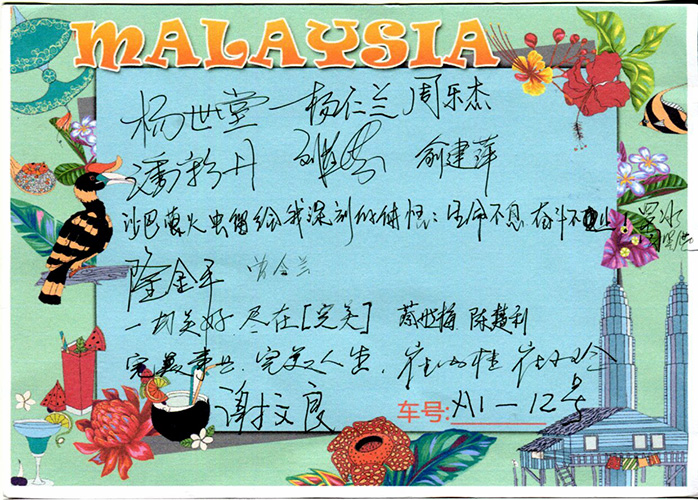 MALAYSIA
杨世堂 杨仁兰 周乐杰
潘 丹 俞建萍
沙巴萤火虫留给我深刻的 : 生命不息 奋斗不止!
隆金平 曾令兰
一切美好 尽在[完美] 蔡世梅 陈慧利
完美事业.完美人生.
谢文良 车号:A1-12号